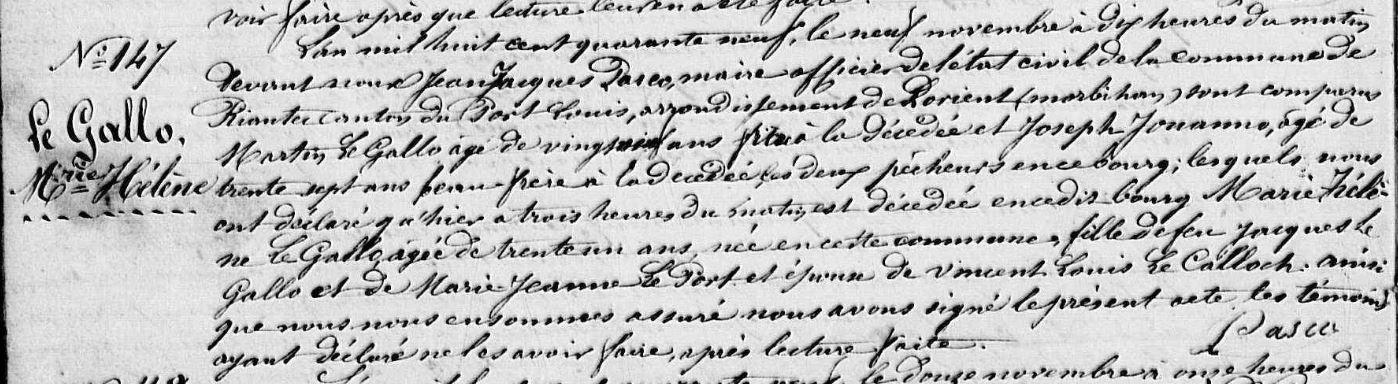 voir faire après que lecture leur en a été faite.
N° 147
L'an mil huit cent quarante neuf, le neuf novembre à dix heures du matin
devant nous Jean Jacques Pasco, maire officier de l'état civil de la commune de
Riantec canton du Port Louis, arrondissement de Lorient (morbihan) sont comparus
Le Gallo,
Martin Le Gallo âgé de vingt ans frère à la décédée et Joseph Jouanno, âgé de
Mrie Hélène
trente sept ans beau-frère à la décédée, les deux pêcheurs en ce bourg; lesquels nous
ont déclaré qu'hier a trois heures du matin est décédée en cedit bourg Marie Hélè-
ne Le Gallo, âgée de trente un ans, née en cette commune, fille de feu Jacques Le
Gallo et de Marie Jeanne Le Port et épouse de Vincent Louis Le Calloch. ainsi
que nous nous en sommes assuré nous avons signé le présent acte, les témoins
ayant déclaré ne le savoir faire, après lecture faite.
Pasco
le douze novembre à onze heures du